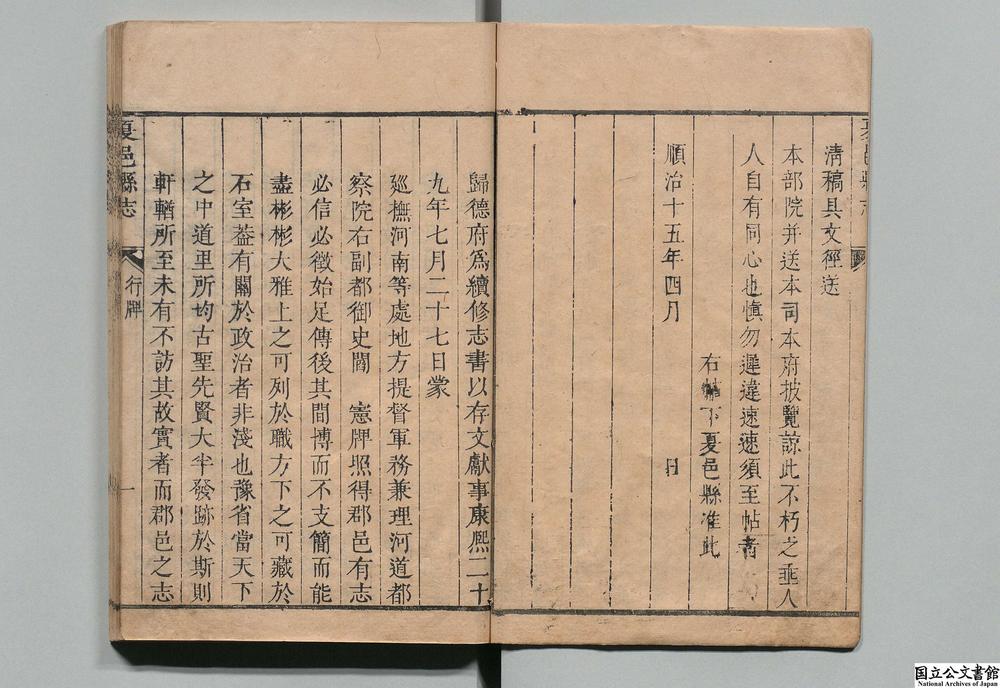 夏邑縣志
清稿具文徑送
本部院并送本司本府披覽諒此不朽之垂人
人自有同心也慎勿遲違速速須至帖者
右帖下夏邑縣准此
順治十五年四月　日
歸德府為續修志書以存文獻事康熙二十
九年七月二十七日蒙
廵撫河南等處地方提督軍務兼理河道都
察院右副都御史閻　憲牌照得郡邑有志
必信必徵始足傳後其間博而不支簡而能
盡彬彬大雅上之可列於職方下之可藏於
石室葢有關於政治者非淺也豫省當天下
之中道里所均古聖先賢大半發跡於斯則
軒輶所至未有不訪其故實者而郡邑之志
夏邑縣志
行牌
一
国立公文書館
National Archives of Japan